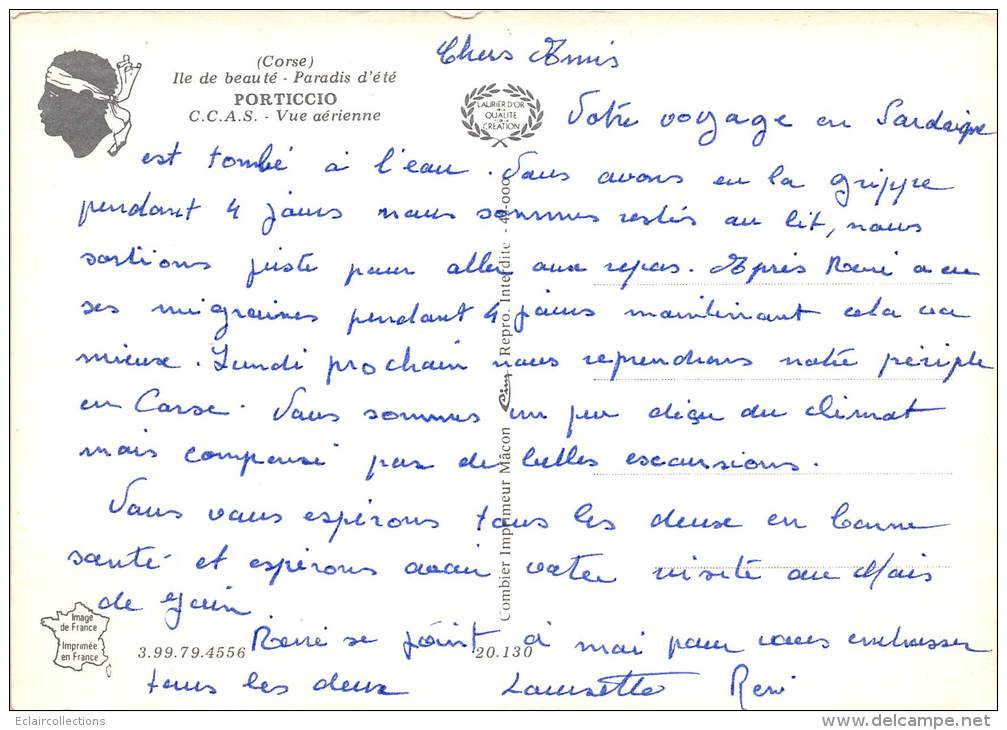 (Corse)
Ile de beauté - Paradis d'été
PORTICCIO
C.C.A.S. - Vue aérienne
LAURIER D'OR
DE LA
QUALITÉ
CRÉATION
Chers Amis
Notre voyage en Sardaigne
est tombé à l'eau. Nous avons eu la grippe
pendant 4 jours nous sommes restés au lit, nous
sortions juste pour aller aux repas. Après René a eu
ses migraines pendant 4 jours maintenant cela va
mieux. Lundi prochain nous reprendrons notre périple
en Corse. Nous sommes un peu déçu du climat
mais compensé par de belles excursions.
Nous vous espérons tous les deux en bonne
santé et espérons avoir votre visite au Mois
de Juin.
René se joint à moi pour vous embrasser
tous les deux
René
Combier Imprimeur Mâcon
Cim
Repro. Interdite - 49-000
Image
de France
Imprimée
en France
3.99.79.4556
20.130
Eclaircollections
delcampe.net